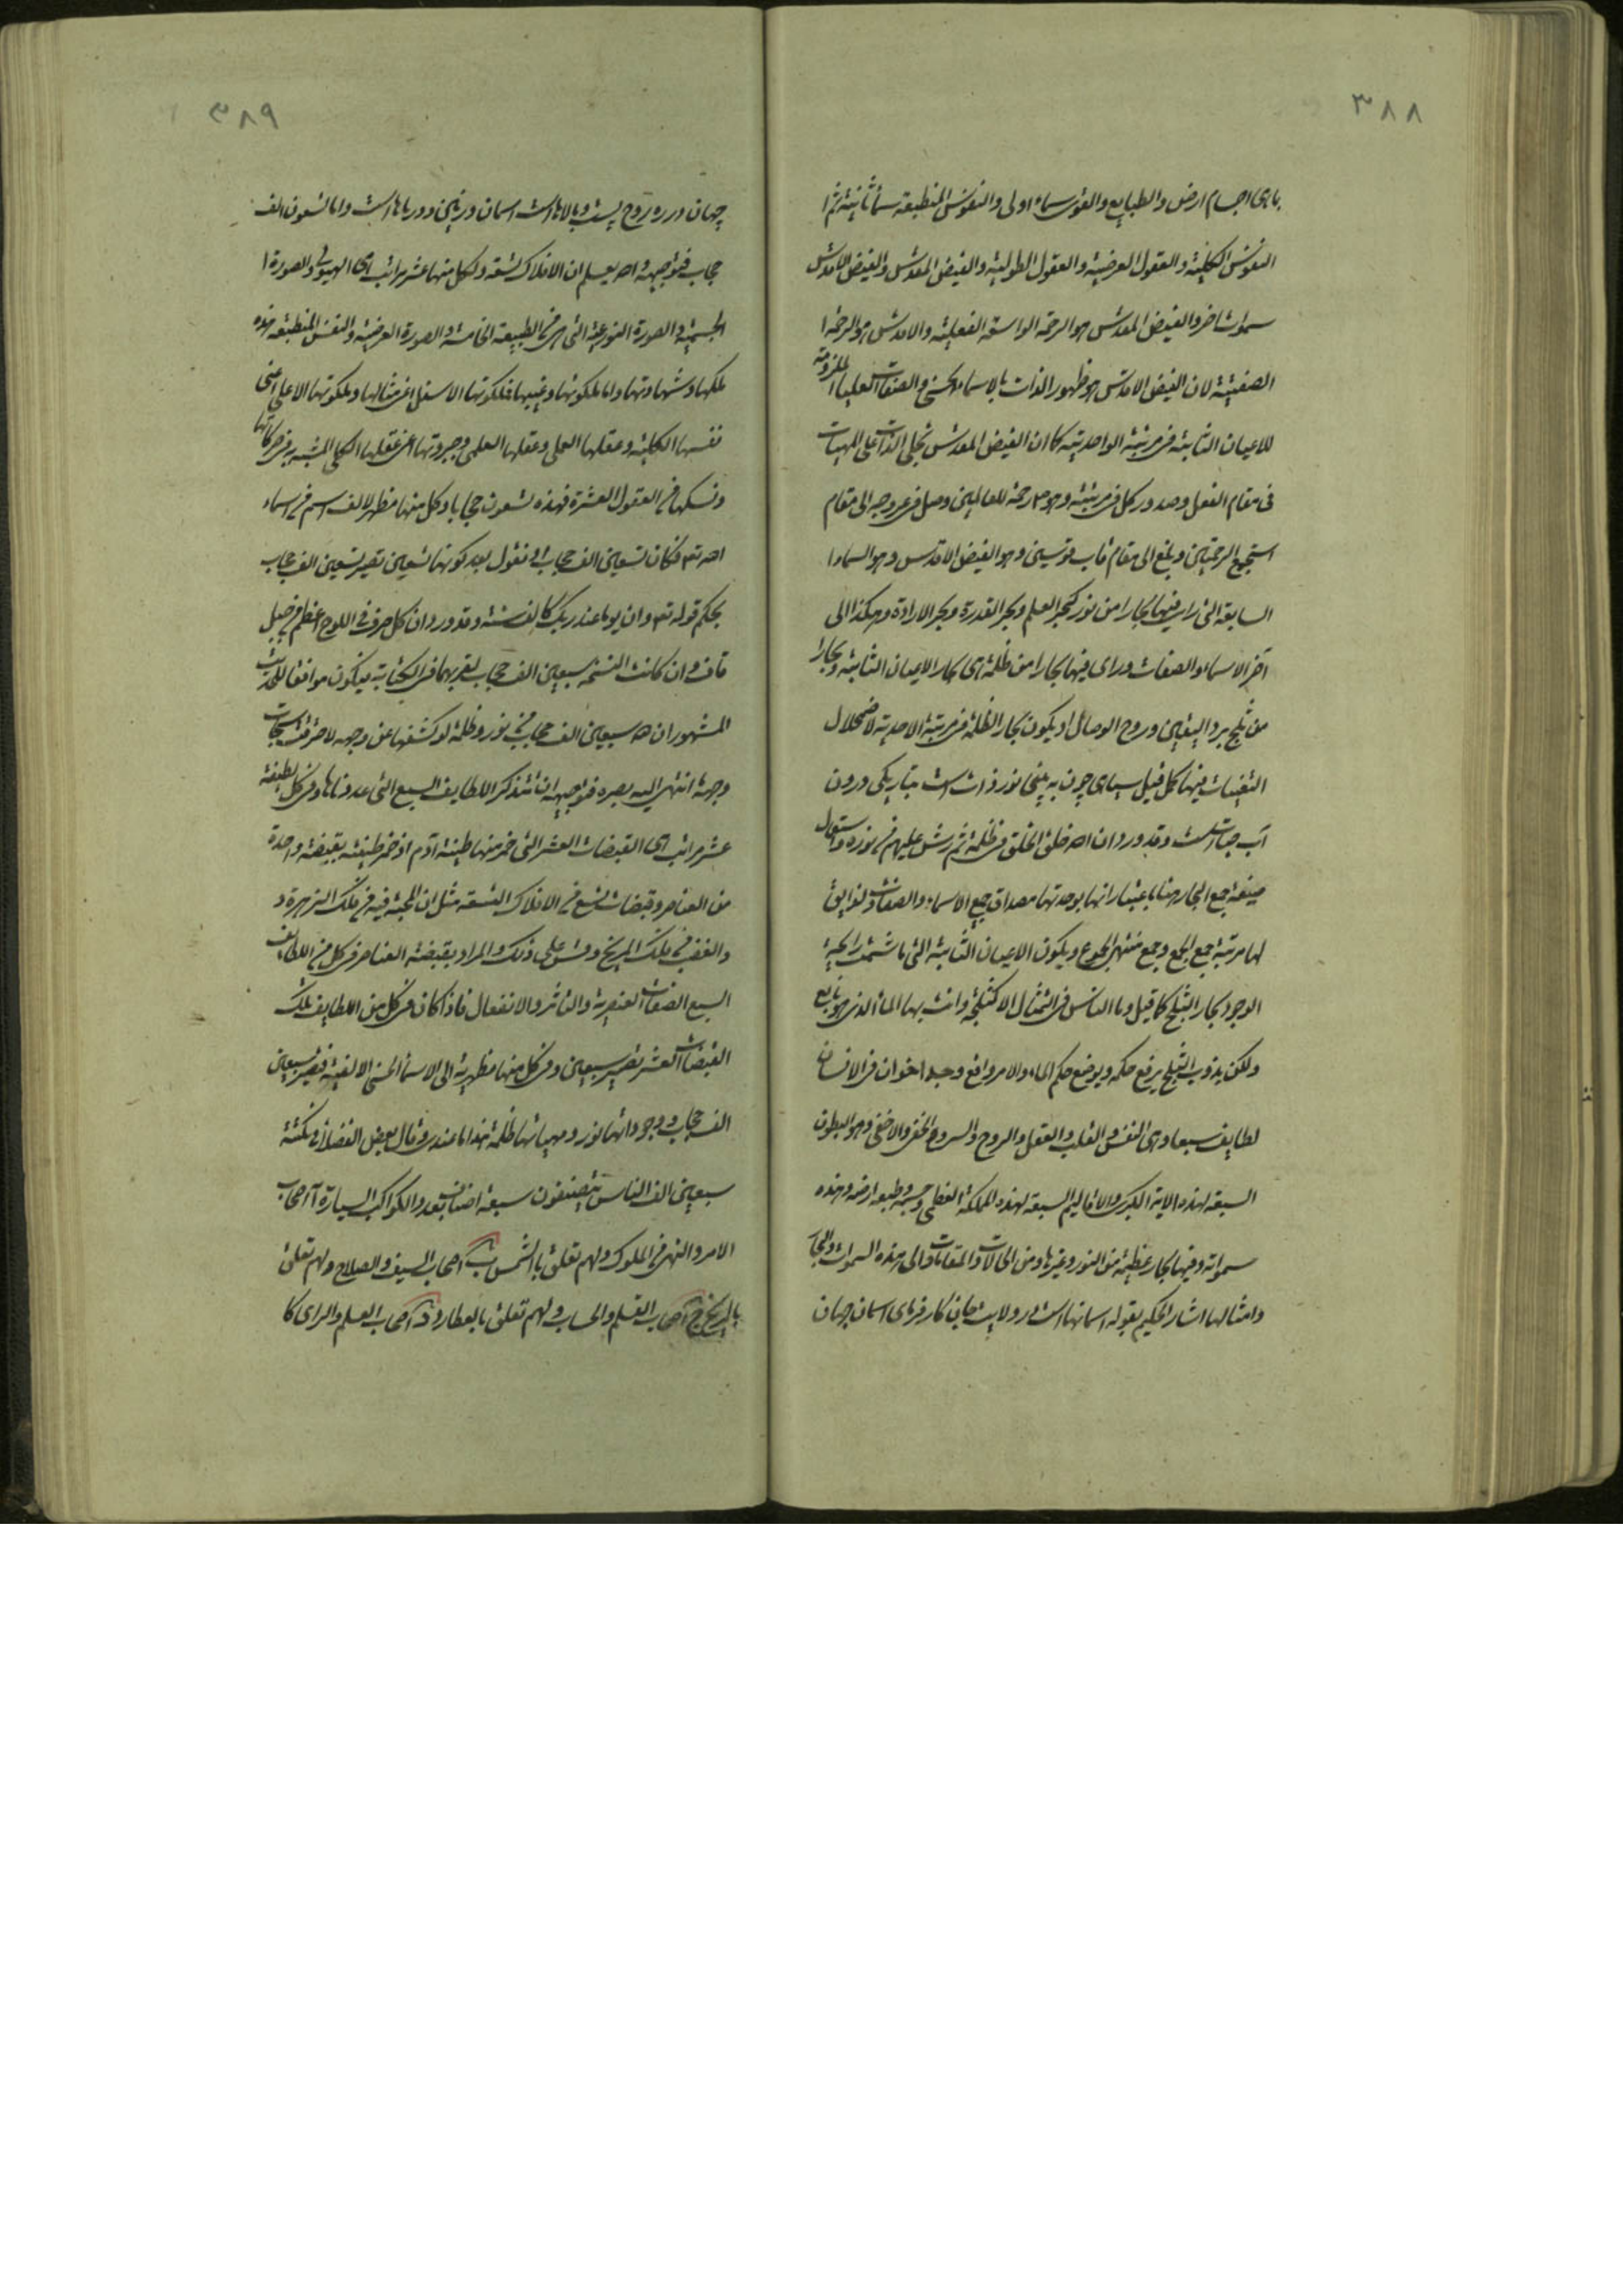 ٣٨٨
باهى اجسام ارض والطبايع والقوى سماء اولى والنفوس المنطبعة سماء ثانية ثم ا
النفوس الكلية والعقول العرضية والعقول الطولية والفيض المقدس والفيض الاقدس
سموات اخر والفيض المقدس هو الرحمة الواسعة الفعلية والاقدس هو الرحمة ا
الصفتية لان الفيض الاقدس هو ظهور الذات بالاسماء الحسنى والصفات العليا الملزومة
للاعيان الثابتة فى مرتبة الواحدية كما ان الفيض المقدس تجلى الذات على المهيات
فى مقام الفعل وصدور كل فى مرتبته وهو رحمة للعالمين وصل فى عروجه الى مقام
استجمع الرحمتين وبلغ الى مقام قاب قوسين وهو الفيض الاقدس وهو السماء ا
السابعة التى راى فيها بحارا من نور كبحر العلم وبحر القدرة وبحر الارادة وهكذا الى
آخر الاسماء والصفات وراى فيها بحارا من ظلمة هى بحار الاعيان الثابتة وبحارا
من ثلج برد اليقين وروح الوصال او يكون بحار الظلمة مرتبة الاحدية لاضمحلال
التعينات فيها كما قيل سياهى چون به بينى نور ذات است بتاريكى درون
آب حيات است وقد ورد ان الله خلق الخلق فى ظلمة ثم رش عليهم من نوره واستعمال
صيغة جمع البحار هنا باعتبار انها بوحدتها مصداق جميع الاسماء والصفات ولذا يق
لها مرتبة جمع الجمع وجمع منتهى الجموع ويكون الاعيان الثابتة التى ما شمت رايحة
الوجود بحار الثلج كما قيل وما الناس فى التمثال الا كثلجة وانت بها الماء الذى هو نابع
ولكن بذوب الثلج يرفع حكمه ويوضع حكم الماء والامر واقع وجه اخر ان فى الانسان
لطايف سبعا وهى النفس والقلب والعقل والروح والسر والخفى والاخفى وهو البطون
السبعة لهذه الاية الكبرى والاقاليم السبعة لهذه المملكة العظمى وجسمه وطبعه ارضه وهذه
سمواته وفيها بحار عظيمة من النور وغيرها ومن الحالات والمقامات والى هذه السموات والبحار
وامثالها اشار الحكيم بقوله اسمانهاست در ولايت جان كارفرماى اسمان جهان
٣٨٩
جهان در ره روح پست وبالاهاست اسمان ورزمين ودرياهاست واما تسعون الف
حجاب فتوجيهه والله يعلم ان الافلاك تسعة ولكل منها عشر مراتب هى الهيولى والصورة ا
الجسمية والصورة النوعية التى هى الطبيعة الخامسة والصورة العرضية والنفس المنطبعة هذه
ملكها وشهادتها واما ملكوتها وغيبها فملكوتها الاسفل اعنى مثالها وملكوتها الاعلى اعنى
نفسها الكلية وعقلها العملى وعقلها العلمى وجبروتها اعنى عقلها الكلى المشبه به فى حركاتها
ونسكها فى العقول العشرة فهذه تسعون حجابا وكل منها مظهر لالف اسم من اسماء
الله تع فكان تسعين الف حجاب او نقول بعد كونها تسعين تصير تسعين الف حجاب
بحكم قوله تع وان يوما عند ربك كالف سنة وقد ورد ان كل حرف فى اللوح اعظم من جبل
قاف وان كانت النسخة سبعين الف حجاب لقربهما فى الكتابة فيكون موافقا للحديث
المشهور ان لله سبعين الف حجاب من نور وظلمة لو كشفها عن وجهه لاحرقت سبحات
وجهه ما انتهى اليه بصره فتوجيهه ان تتذكر اللطايف السبع التى عددناها وفى كل لطيفة
عشر مراتب هى القبضات العشر التى خمر منها طينة آدم اذ خمر طينته بقبضة واحدة
من العناصر وقبضات تسع من الافلاك التسعة مثل ان المحبة فيه من فلك الزهرة و
والغضب من فلك المريخ وقس على ذلك والمراد بقبضة العناصر فى كل من اللطايف
السبع الصفات العنصرية والتاثر والانفعال فاذا كان فى كل من اللطايف تلك
القبضات العشر تصير سبعين وفى كل منها مظهرية الى الاسماء الحسنى الالفية فيصير سبعين
الف حجاب وجوداتها نور ومهياتها ظلمة هذا ما عندى وقال بعض الفضلاء فى نكتة
سبعين الف الناس يتصنفون سبعة اصناف بعدد الكواكب السيارة آ اصحاب
الامر والنهى من الملوك ولهم تعلق بالشمس ب اصحاب السيف والصلاح ولهم تعلق
بالمريخ ج اصحاب القلم والحساب ولهم تعلق بالعطارد د اصحاب العلم والراى كا